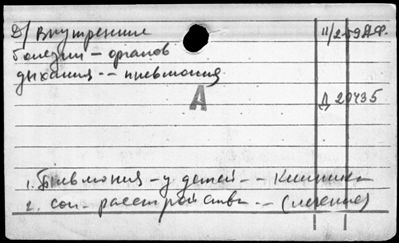 Д/ Внутренние 11/2-59 А.Ф.
болезни - органов
дыхания -- пневмония
А
Д 20435
1. Пневмония - у детей -- Клиника
2. Сон - расстройства -- (лечение)